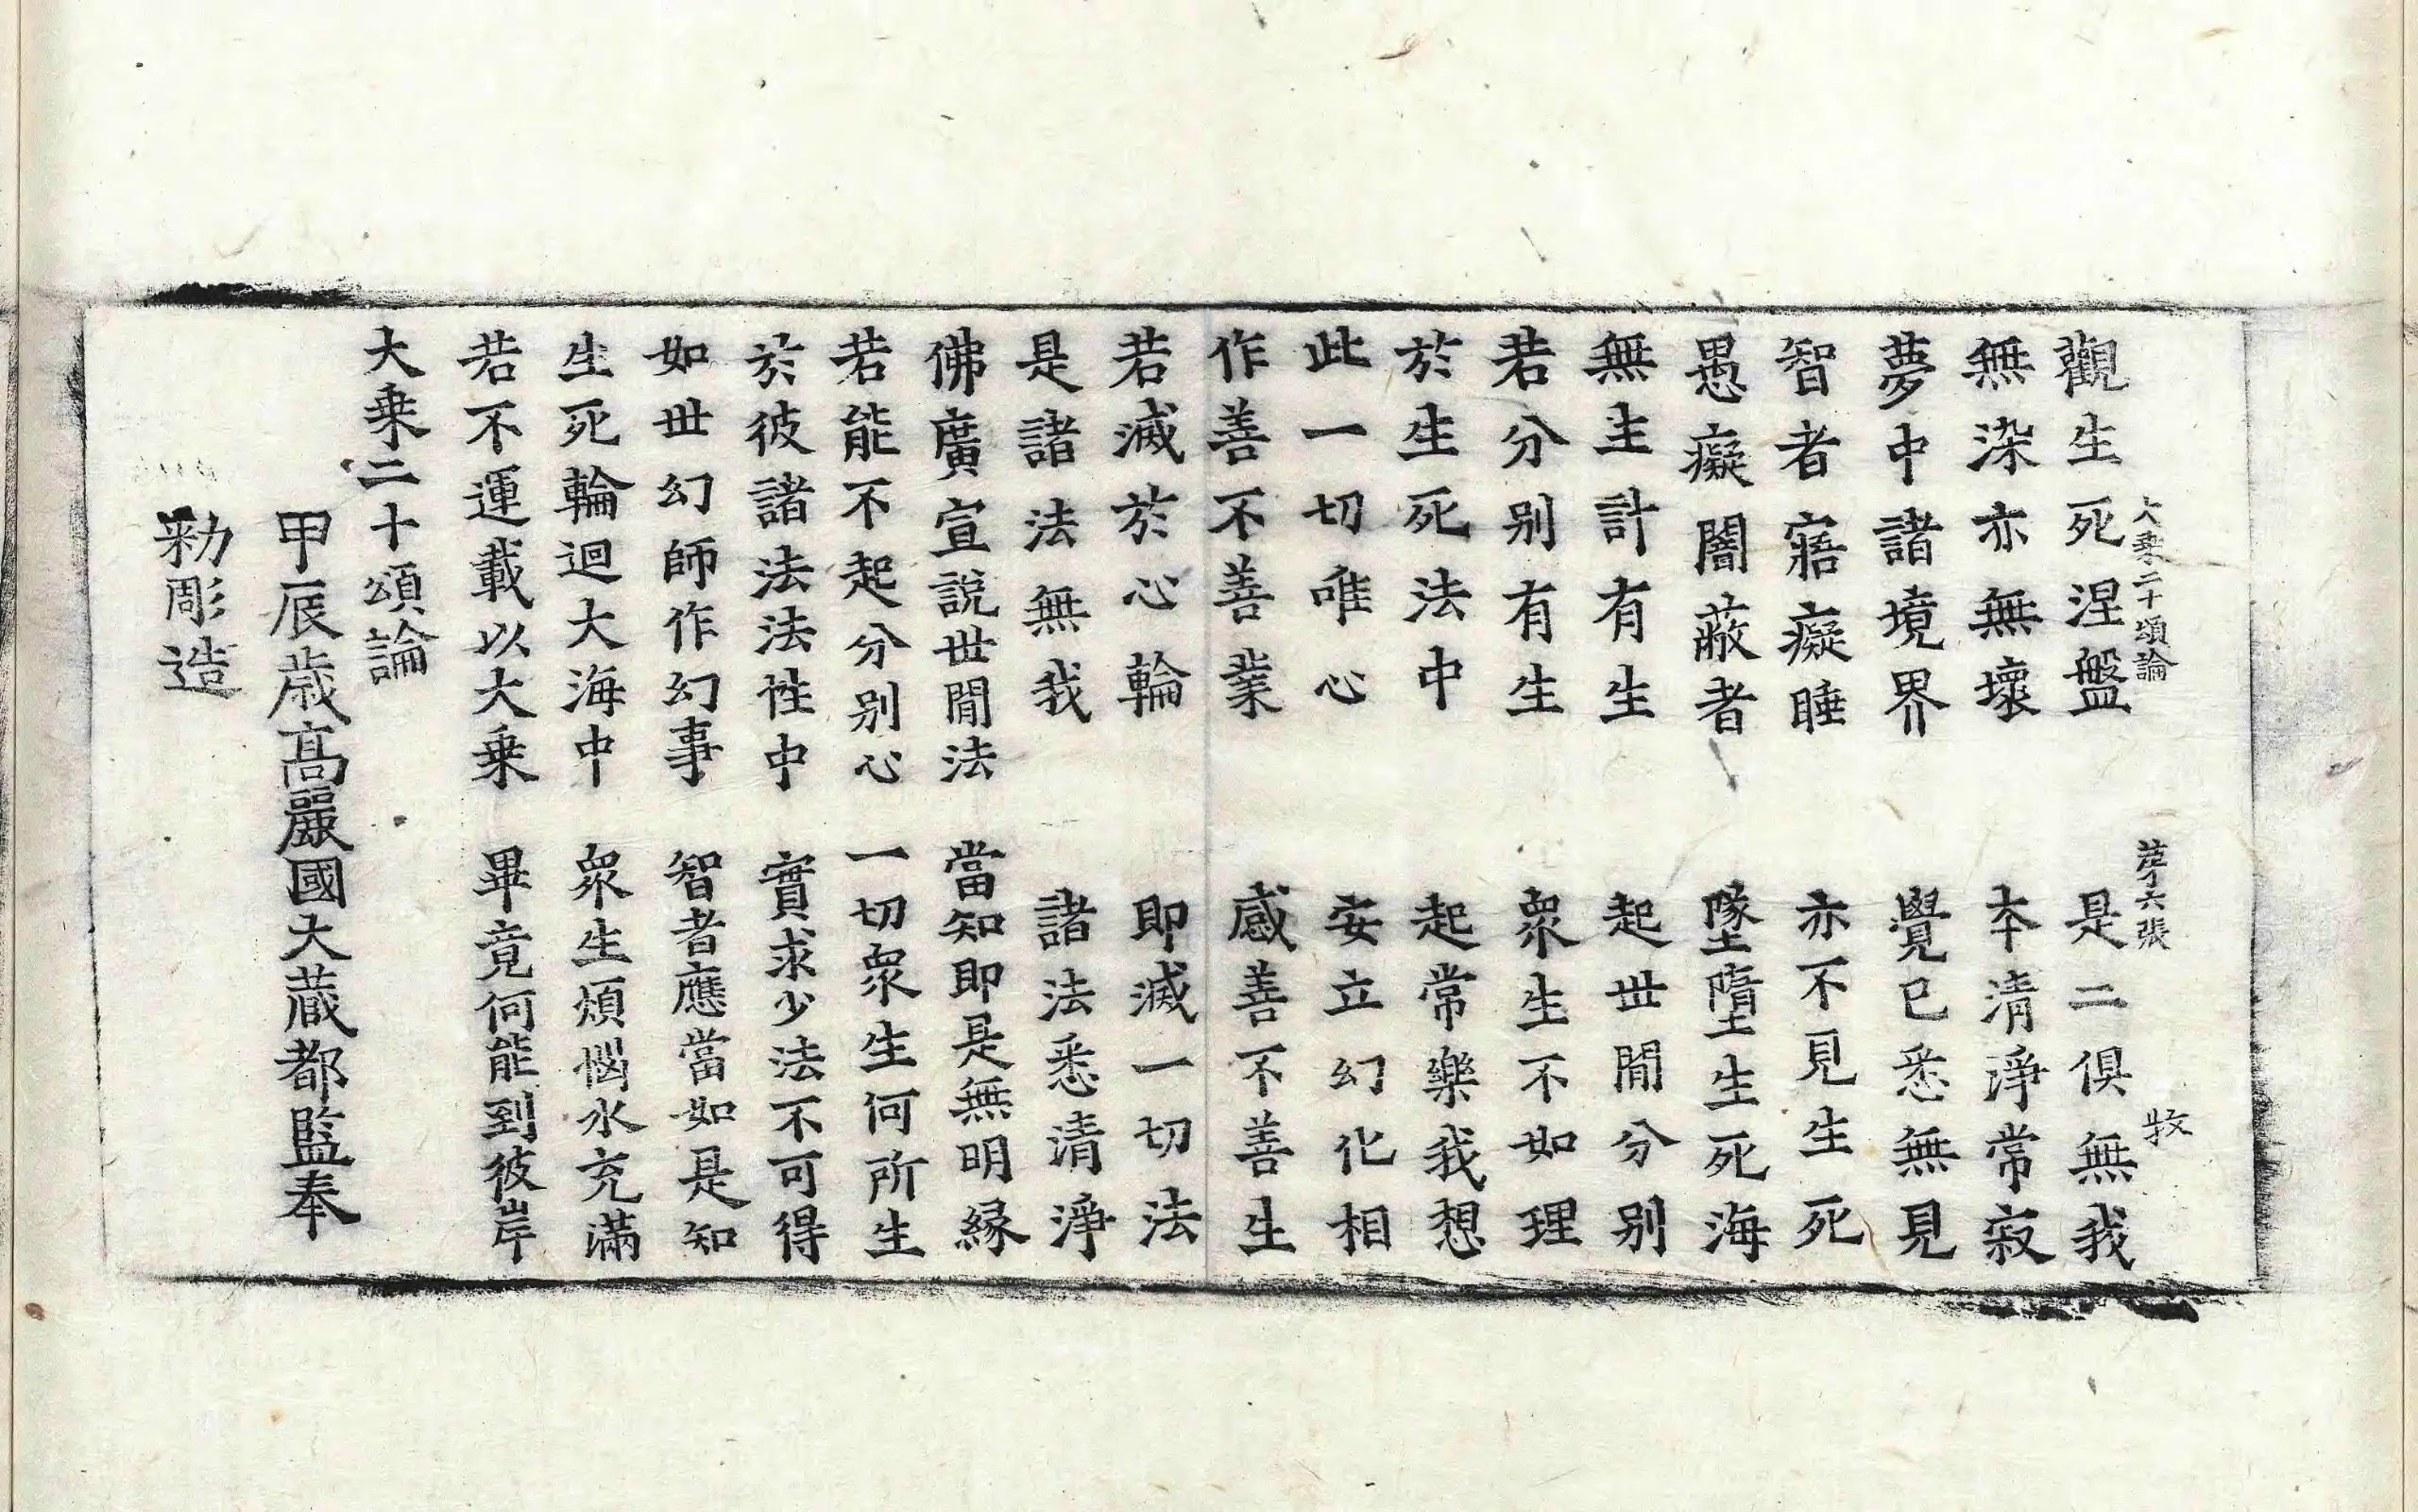 大乗二十頌論　第六張　牧
觀生死涅盤　是二俱無我
無染亦無壞　本清淨常寂
夢中諸境界　覺已悉無見
智者寤癡睡　亦不見生死
愚癡闇蔽者　墜墮生死海
無生計有生　起世閒分别
若分别有生　衆生不如理
於生死法中　起常樂我想
此一切唯心　安立幻化相
作善不善業　感善不善生
若滅於心輪　即滅一切法
是諸法無我　諸法悉清淨
佛廣宣說世閒法　當知即是無明緣
若能不起分别心　一切衆生何所生
於彼諸法法性中　實求少法不可得
如世幻師作幻事　智者應當如是知
生死輪迴大海中　衆生煩惱水充滿
若不運載以大乗　畢竟何能到彼岸
大乗二十頌論
甲辰歳高麗國大藏都監奉
勑彫造